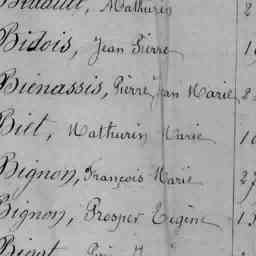 Mathurin 2
Bidois, Jean Pierre
Bienassis, Pierre Jean Marie
Biet, Mathurin Marie
Bignon, François Marie 27
Bignon, Prosper Eugène